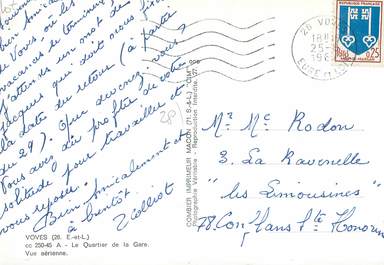 de Voves, où les
vacances se terminent
J'attends un mot de
Jacques qui doit nous fixer
la date du retour (à partir
du 29). Que devenez vous,
vous avez dû profiter de votre
solitude pour travailler et
vous reposer.
Bien amicalement et
à bientôt.
28
VOVES (28. E.-et-L.)
cc 250-45 A - Le Quartier de la Gare.
Vue aérienne.
COMBIER IMPRIMEUR MACON (71. S.-&-L.) "CIM"
Photographie Véritable - Reproduction Interdite
28 VOVES
18H
25-
EURE ET
REPUBLIQUE FRANÇAISE
0,25
Mr Me Rodon
3. La Ravenelle
"les Limousines"
78. Conflans Ste Honorine